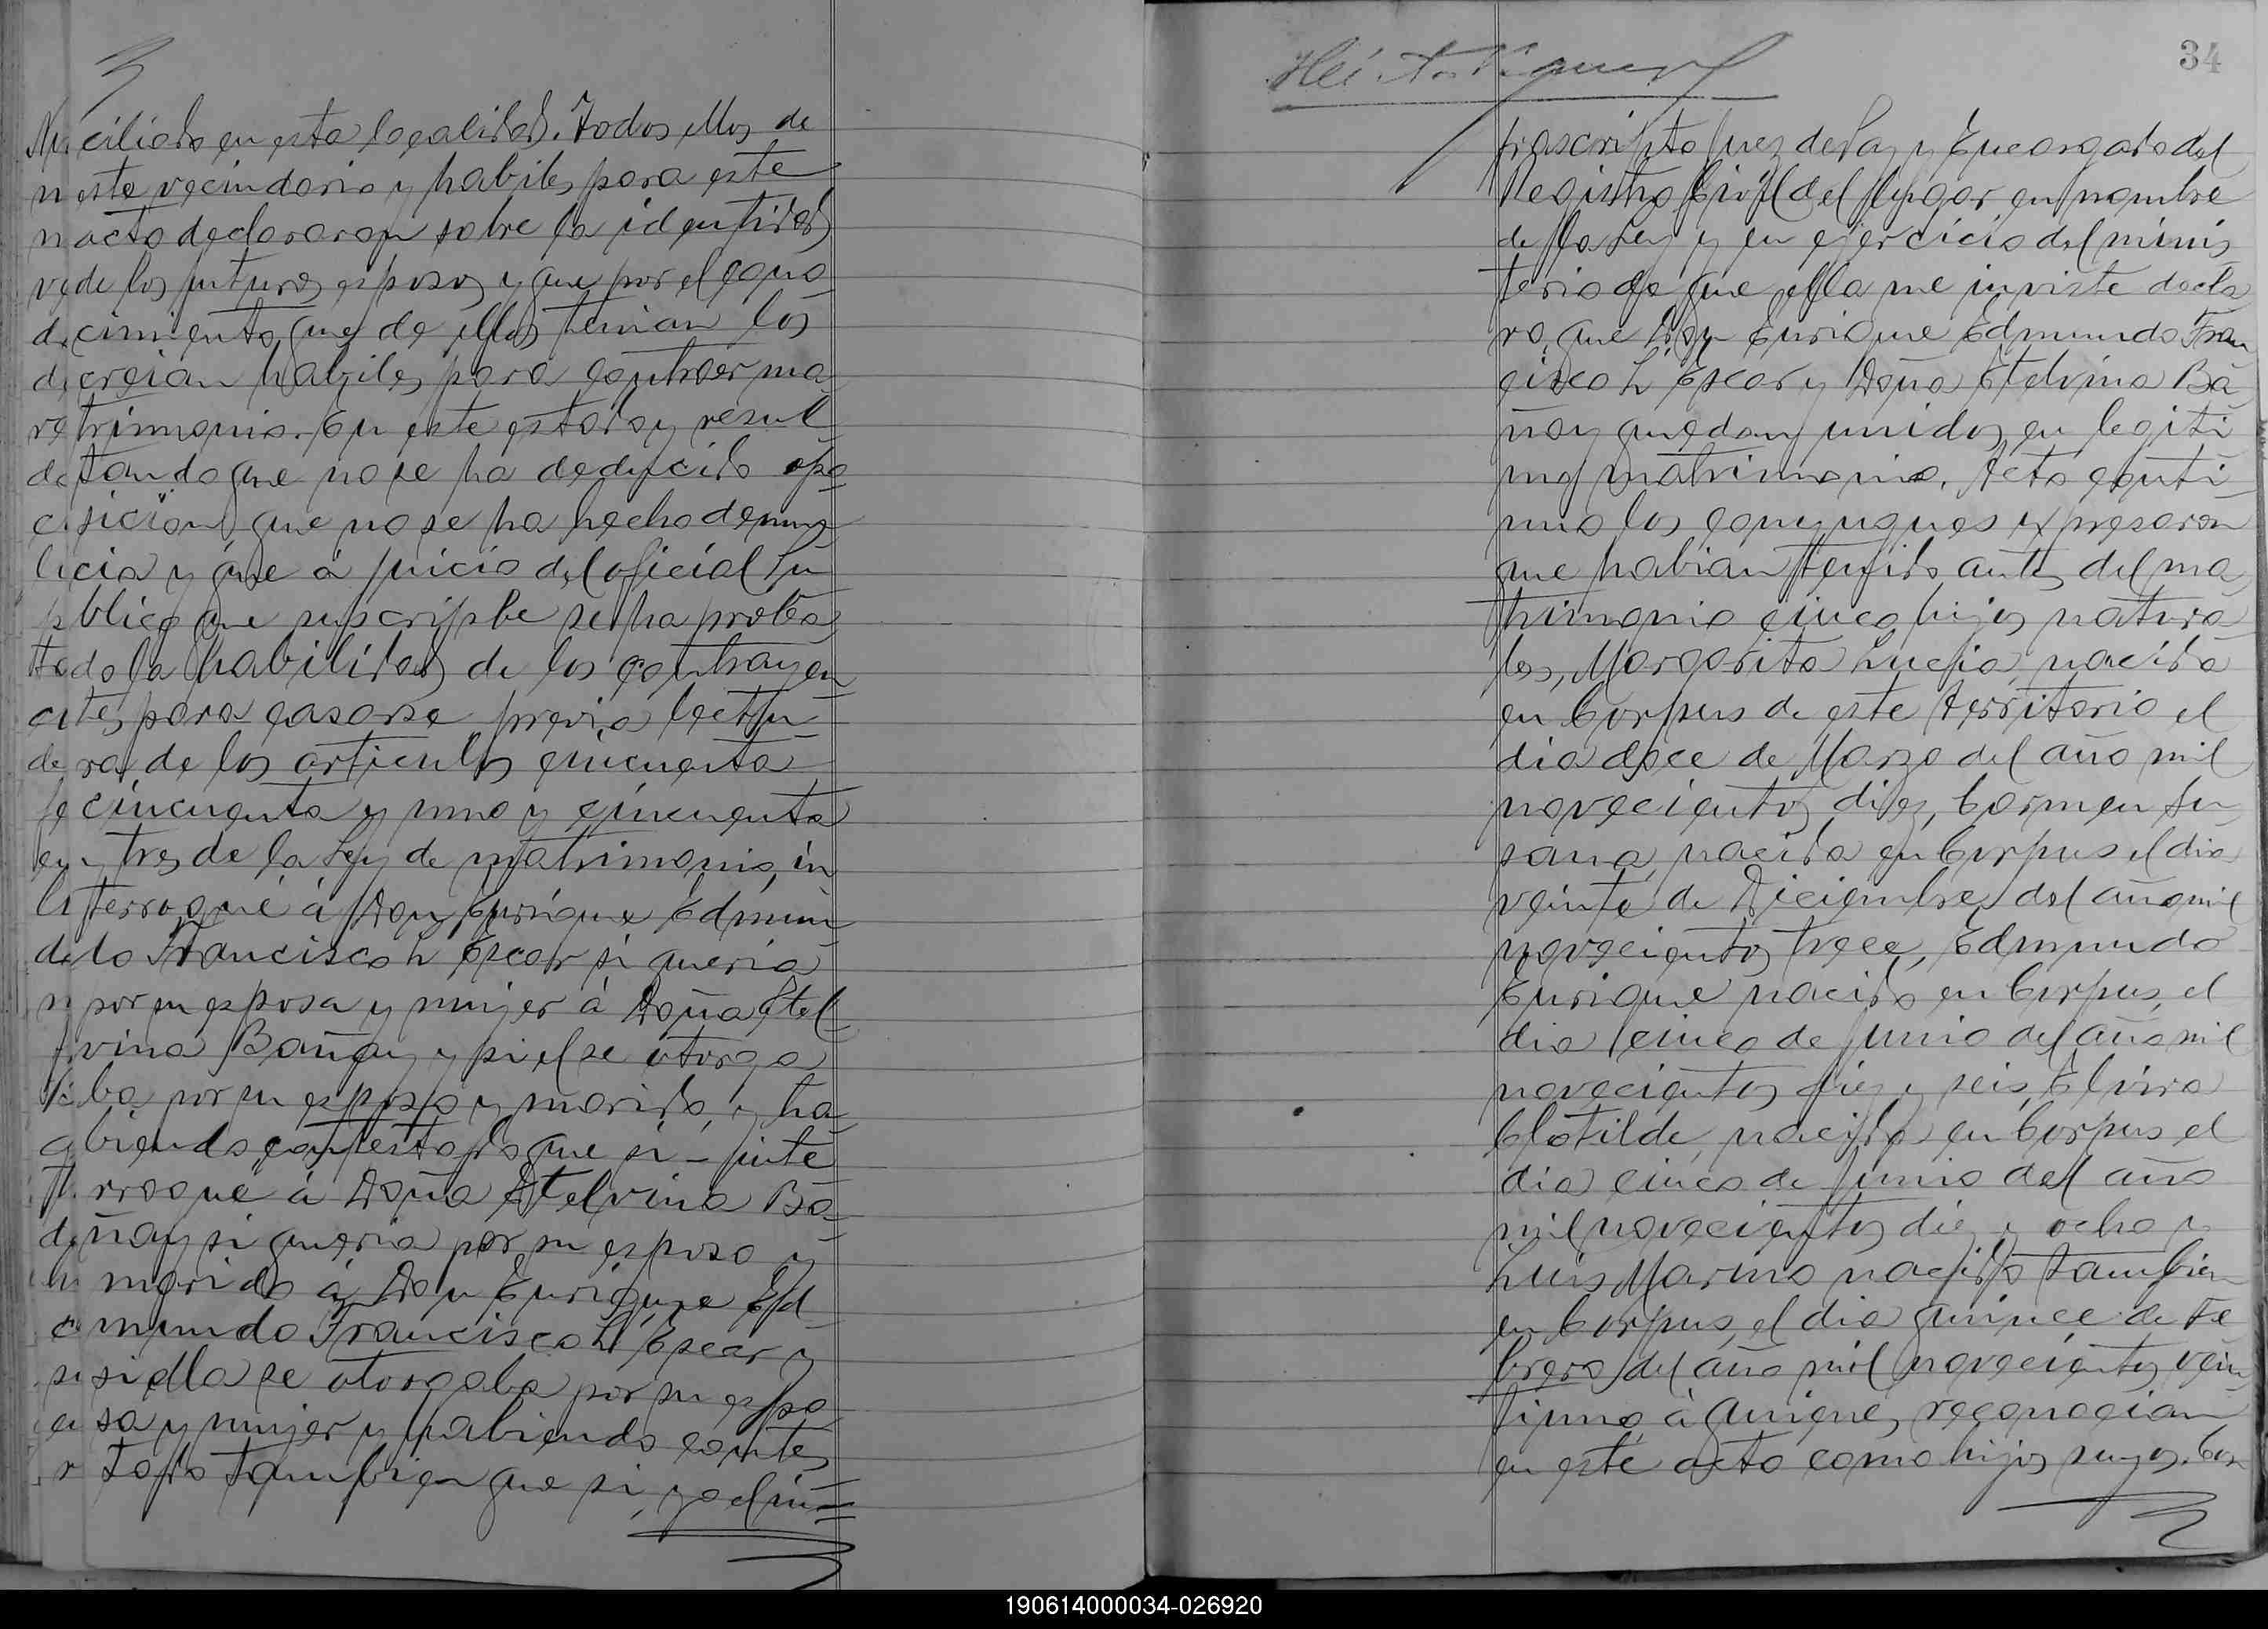 ciliado en esta localidad. Todos ellos de
este vecindario y habiles para este
acto declararon sobre la identidad
de los futuros esposos y que por el cono
cimiento que de ellos tenian los
creian habiles para contraer ma
trimonio. En este estado y resul
tando que no se ha deducido opo
sicion, que no se ha hecho denun
cia y que á juicio del oficial Pú
blico que suscribe se ha proba
do la habilidad de los contrayen
tes para casarse previa lectu
ra de los articulos cincuenta
cincuenta y uno y cincuenta
y tres de la Ley de matrimonio, in
terrogué á Don Enrique Edmun
do Francisco L'Escar si queria
por su esposa y mujer á Doña Etel
vina Bañay y si el se otorga
ba por su esposo y marido, y ha
biendo contestado que si - inte
rrogué á Doña Etelvina Ba
ñay si queria por su esposo y
marido á Don Enrique Ed
mundo Francisco L'Escar y
si ella se otorgaba por su espo
sa y mujer y habiendo contes
tado tambien que si, yo el in
34
frascripto Juez de Paz y Encargado del
Registro Civil del lugar en nombre
de la Ley y en ejercicio del minis
terio de que ella me inviste decla
ro que Don Enrique Edmundo Fran
cisco L'Escar y Doña Etelvina Ba
ñay quedan unidos en legiti
mo matrimonio. Acto conti
nuo los conyugues expresaron
que habian tenido antes del ma
trimonio cinco hijos natura
les, Margarita Lucia, nacida
en Corpus de este Territorio el
dia doce de Marzo del año mil
novecientos diez, Carmen Su
sana, nacida en Corpus el dia
veinte de Diciembre del año mil
novecientos trece, Edmundo
Enrique nacido en Corpus, el
dia cinco de Junio del año mil
novecientos diez y seis, Elvira
Clotilde, nacida en Corpus el
dia cinco de Junio del año
mil novecientos diez y ocho y
Luis Marino nacido tambien
en Corpus, el dia quince de Fe
brero del año mil novecientos vein
tiuno, á quienes reconocian
en este acto como hijos suyos. Con
190614000034-026920